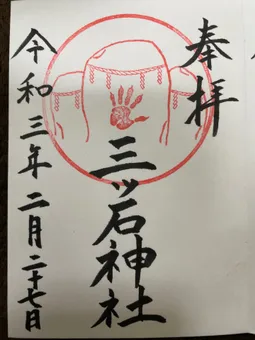 奉拝
三ッ石神社
令和三年二月二十七日